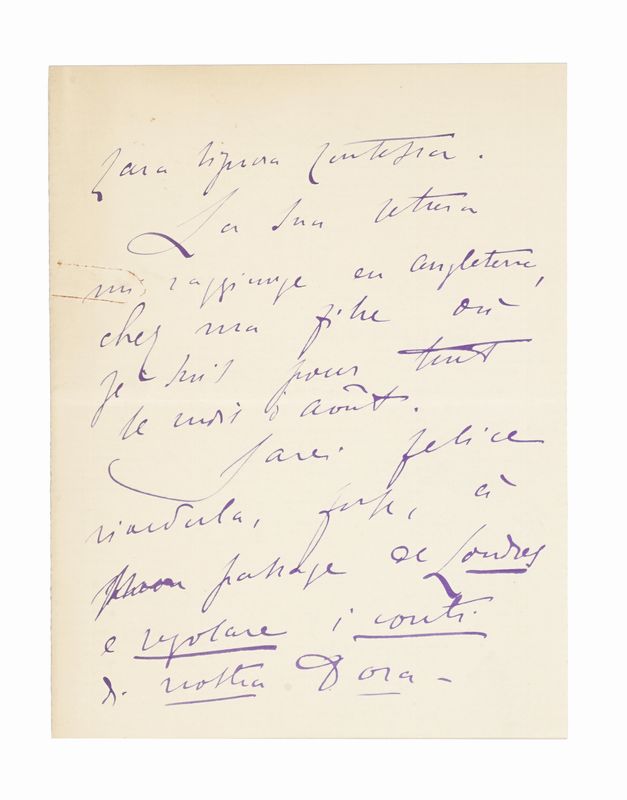 Cara Signora Contessa.
La sua lettera
mi raggiunge en Angleterre,
chez ma fille où
je suis pour tout
le mois d'août.
Sarei felice
rivederla, forse, à
mon passage de Londres
e regolare i conti
di nostra Dora -